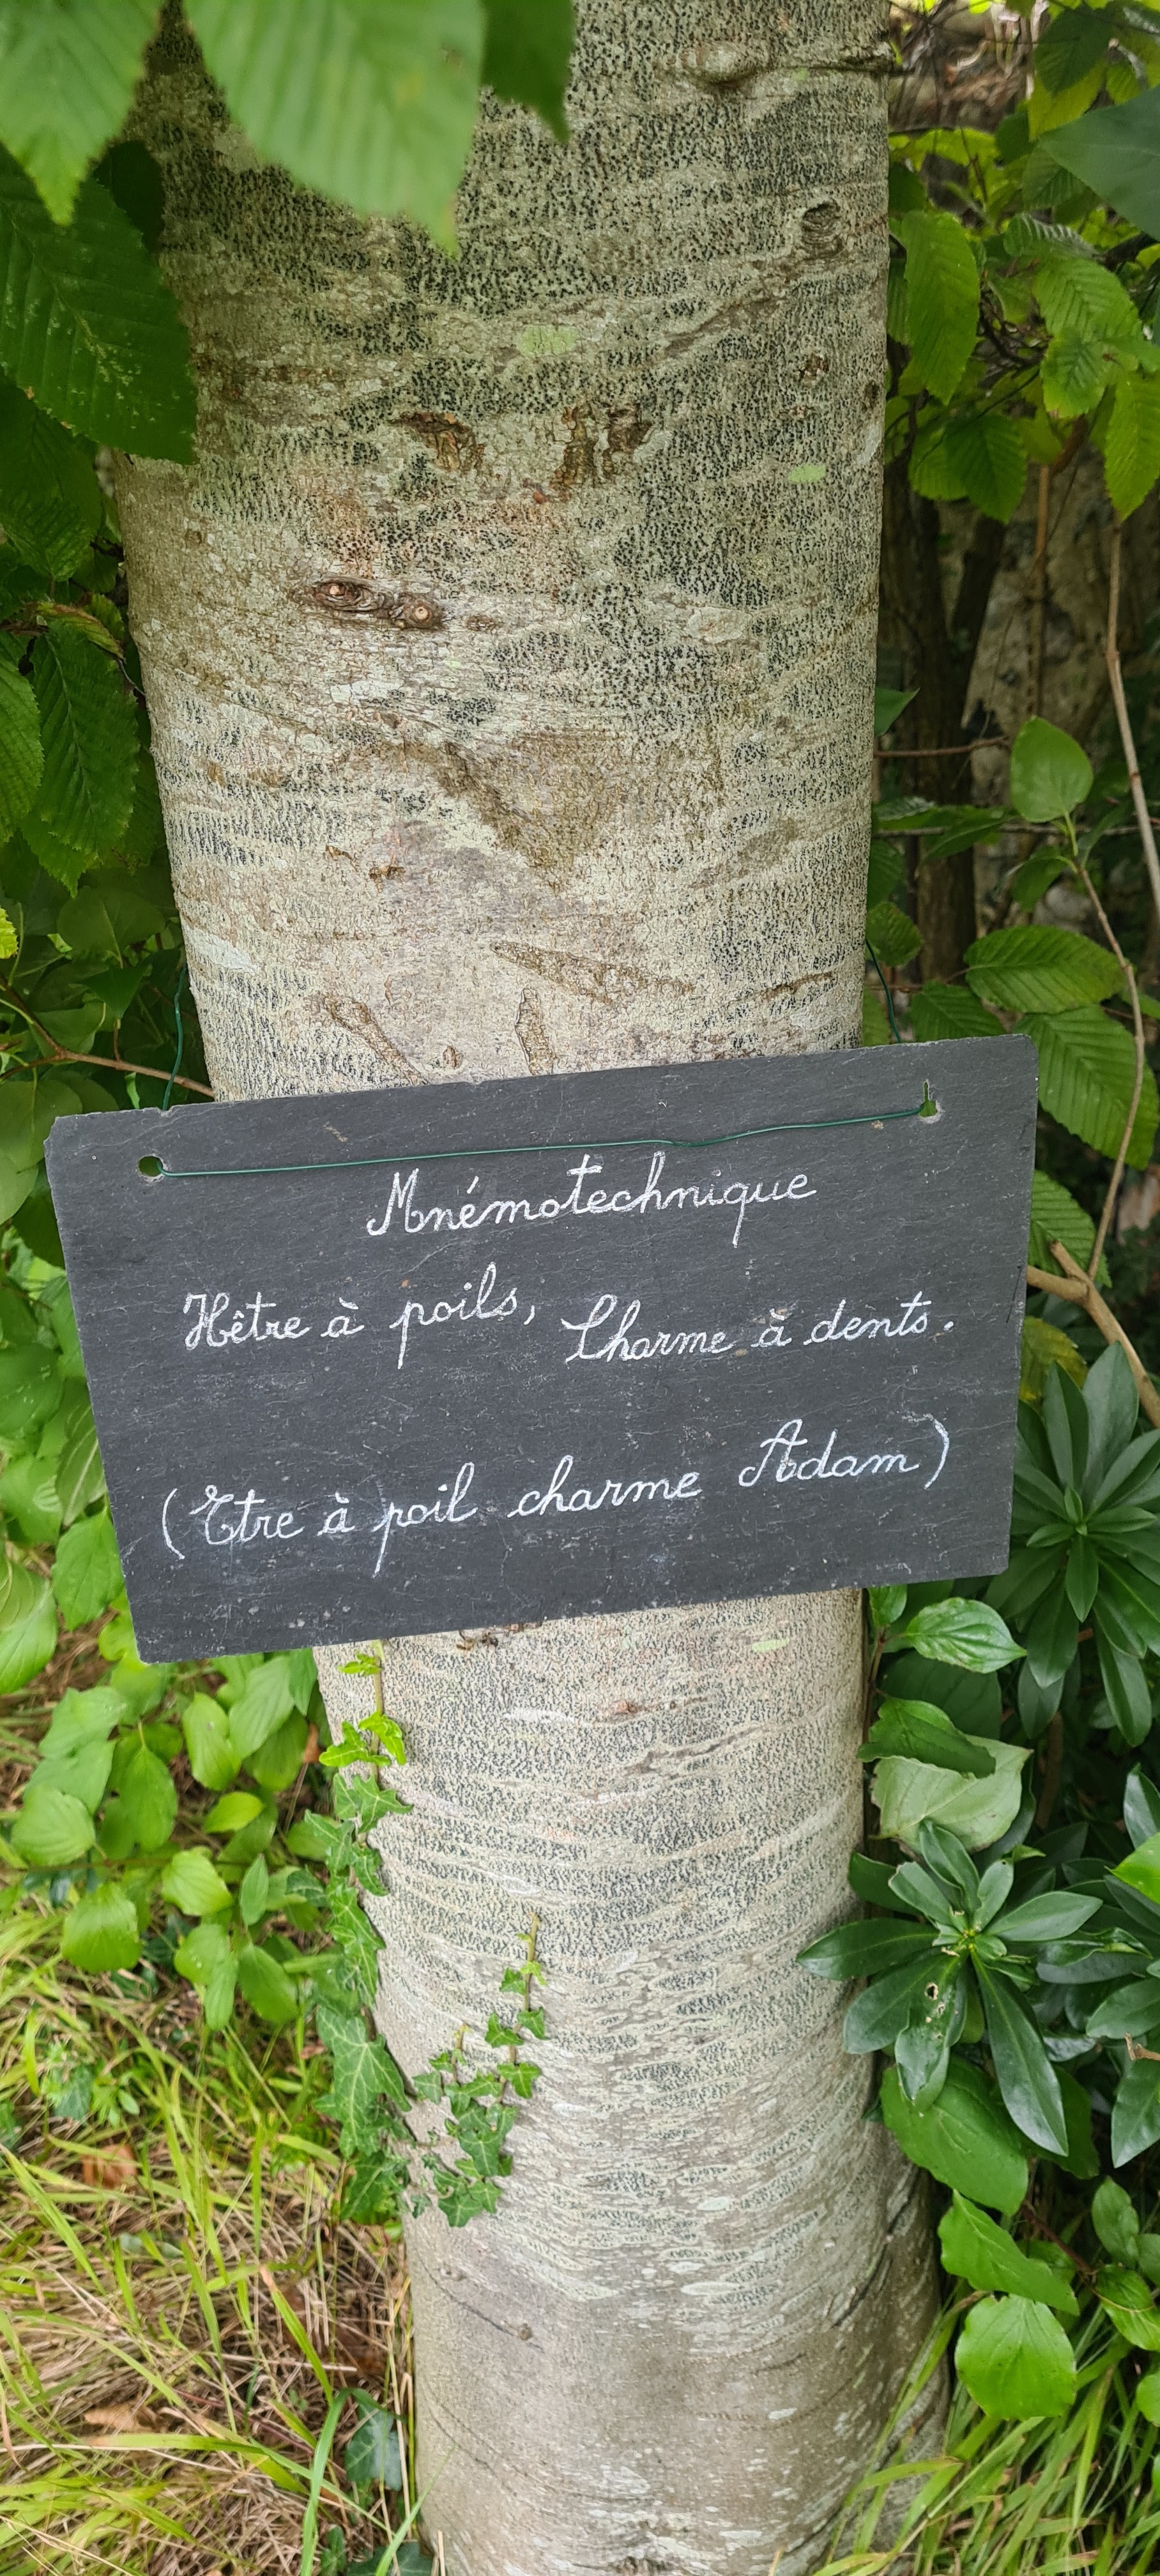 Mnémotechnique
Hêtre à poils, Charme à dents.
(Etre à poil charme Adam)